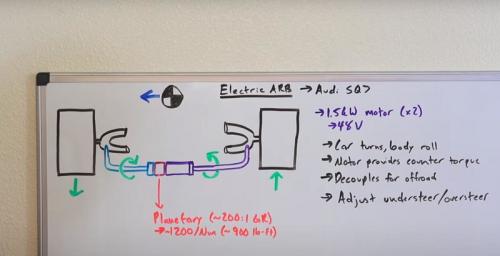 Electric ARB → Audi SQ7
→ 1.5kW motor (x2)
→ 48V
→ Car turns, body roll
→ Motor provides counter torque
→ Decouples for offroad
→ Adjust understeer/oversteer
Planetary (~200:1 GR)
→ ~1200/Nm (~900 lb-ft)